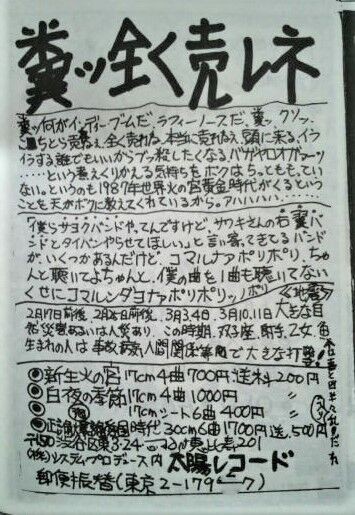 糞ッ全く売レネ
糞ッ何がインディーブームだ、ラフィーノースだ、糞ックソッ、
こちとら売れねェ、全く売れねェ、本当に売れねェ、頭に来る、イライ
ラする誰でもいいからブッ殺したくなるバカヤロオオがァーッ
……という煮えくりかえる気持ちをボクはちっとももってい
ない。というのも1987年世界火の宮黄金時代がくるという
ことを天がボクに教えてくれているから。アハハハハ……
「僕らサヨクバンドや、てんですけど、サワキさんの右翼バ
ンドとタイバンやらせてほしい」と言い寄ってきてるバンド
が、いくつかあるんだけど、コマルナァポリポリ、ちゃ
んと聴いてよちゃんと、僕の曲を1曲も聴いてない
くせにコマルンダヨナァポリポリッポリ 〈地震〉
2月17日前後、2月25日前後、3月3.4日、3月10.11日大きな自
然災害あるいは人災あり、この時期、双子座、射手、乙女、魚
生まれの人は事故、病気、人間関係等で大きな打撃!
◉新生火の宮17cm4曲700円送料200円
◉白夜の季節17cm4曲1000円 〃
◉ 17cmシート6曲400円 〃
◉ 時代30cm6曲1700円送、500円
〒150渋谷区東3-24 恵比寿201
(株)システムプロデュース内 太陽レコード
郵便振替(東京2-179 7)